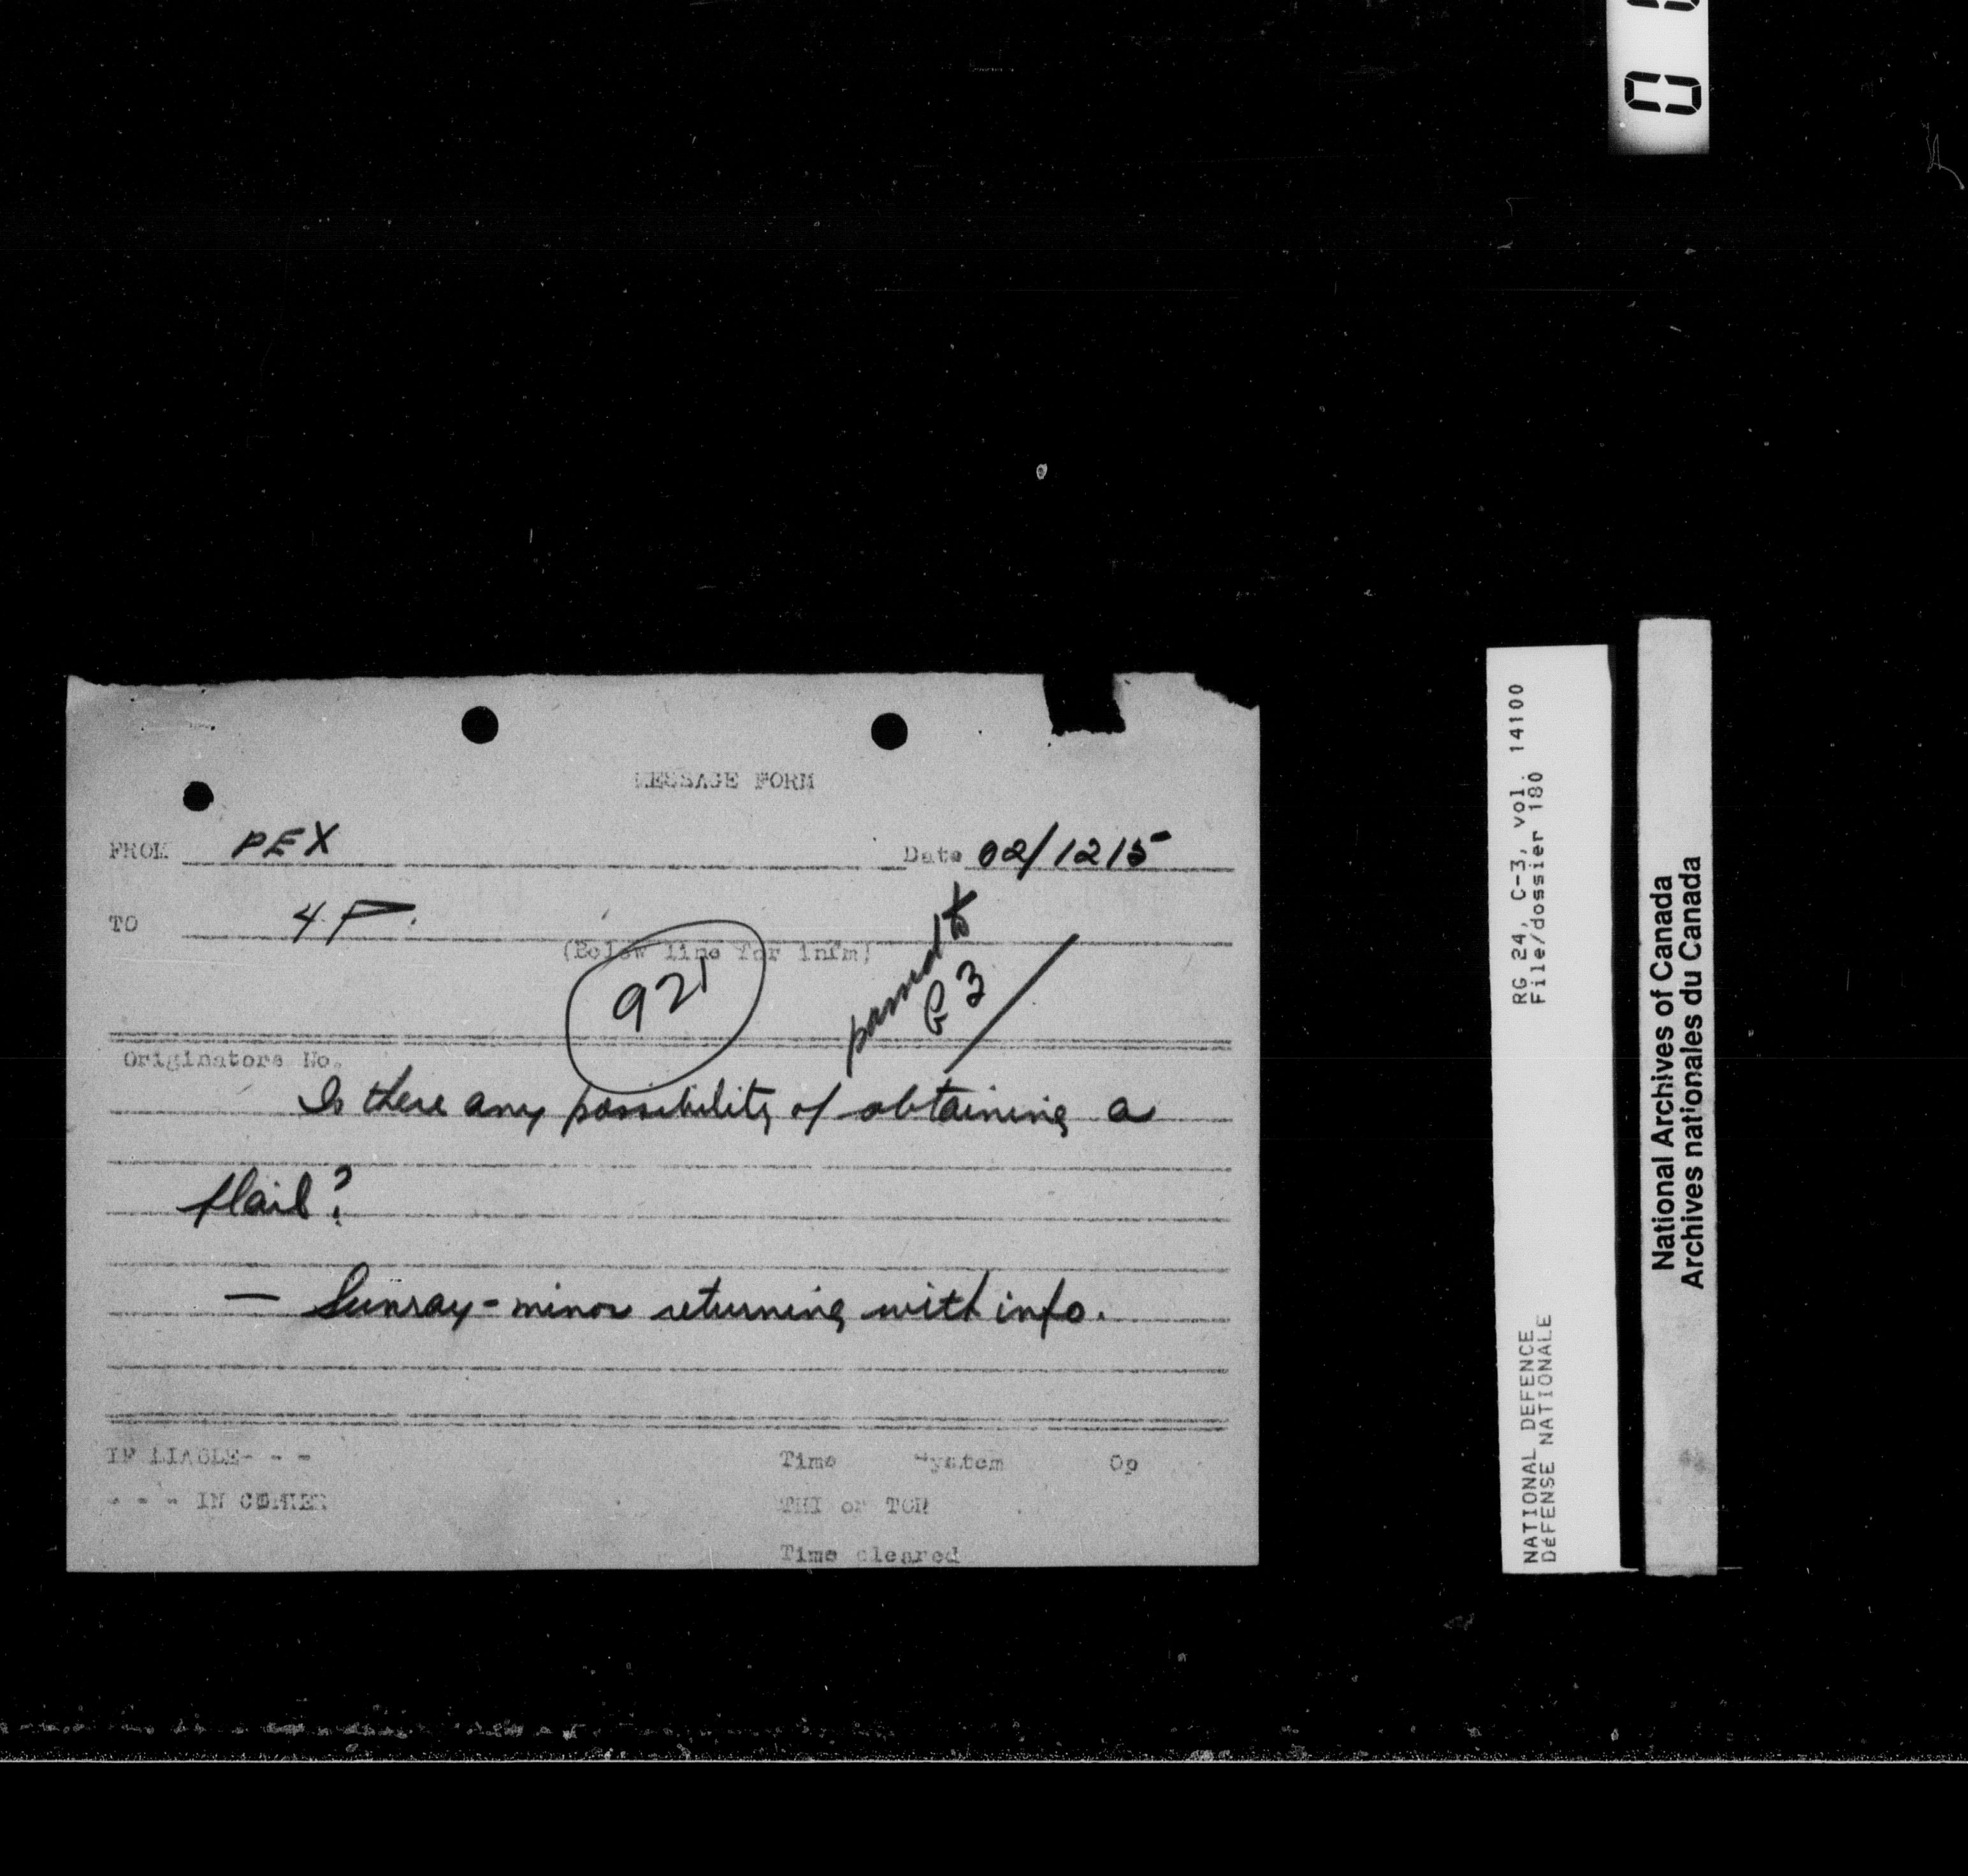 MESSAGE FORM
FROM PEX Date 02/1215
TO 4
(Below line for infm)
921
passed to
G 3
Originators No.
Is there any possibility of obtaining a
flail?
— Sunray-minor returning with info.
IF LIABLE- - - Time System Op
- - - IN CIPHER THI or TOR
Time cleared
RG 24, C-3, vol. 14100
File/dossier 180
NATIONAL DEFENCE
DéFENSE NATIONALE
National Archives of Canada
Archives nationales du Canada